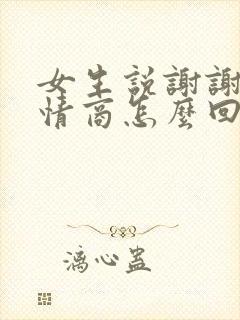 女生説謝謝
情商怎麼回
漓心蛊